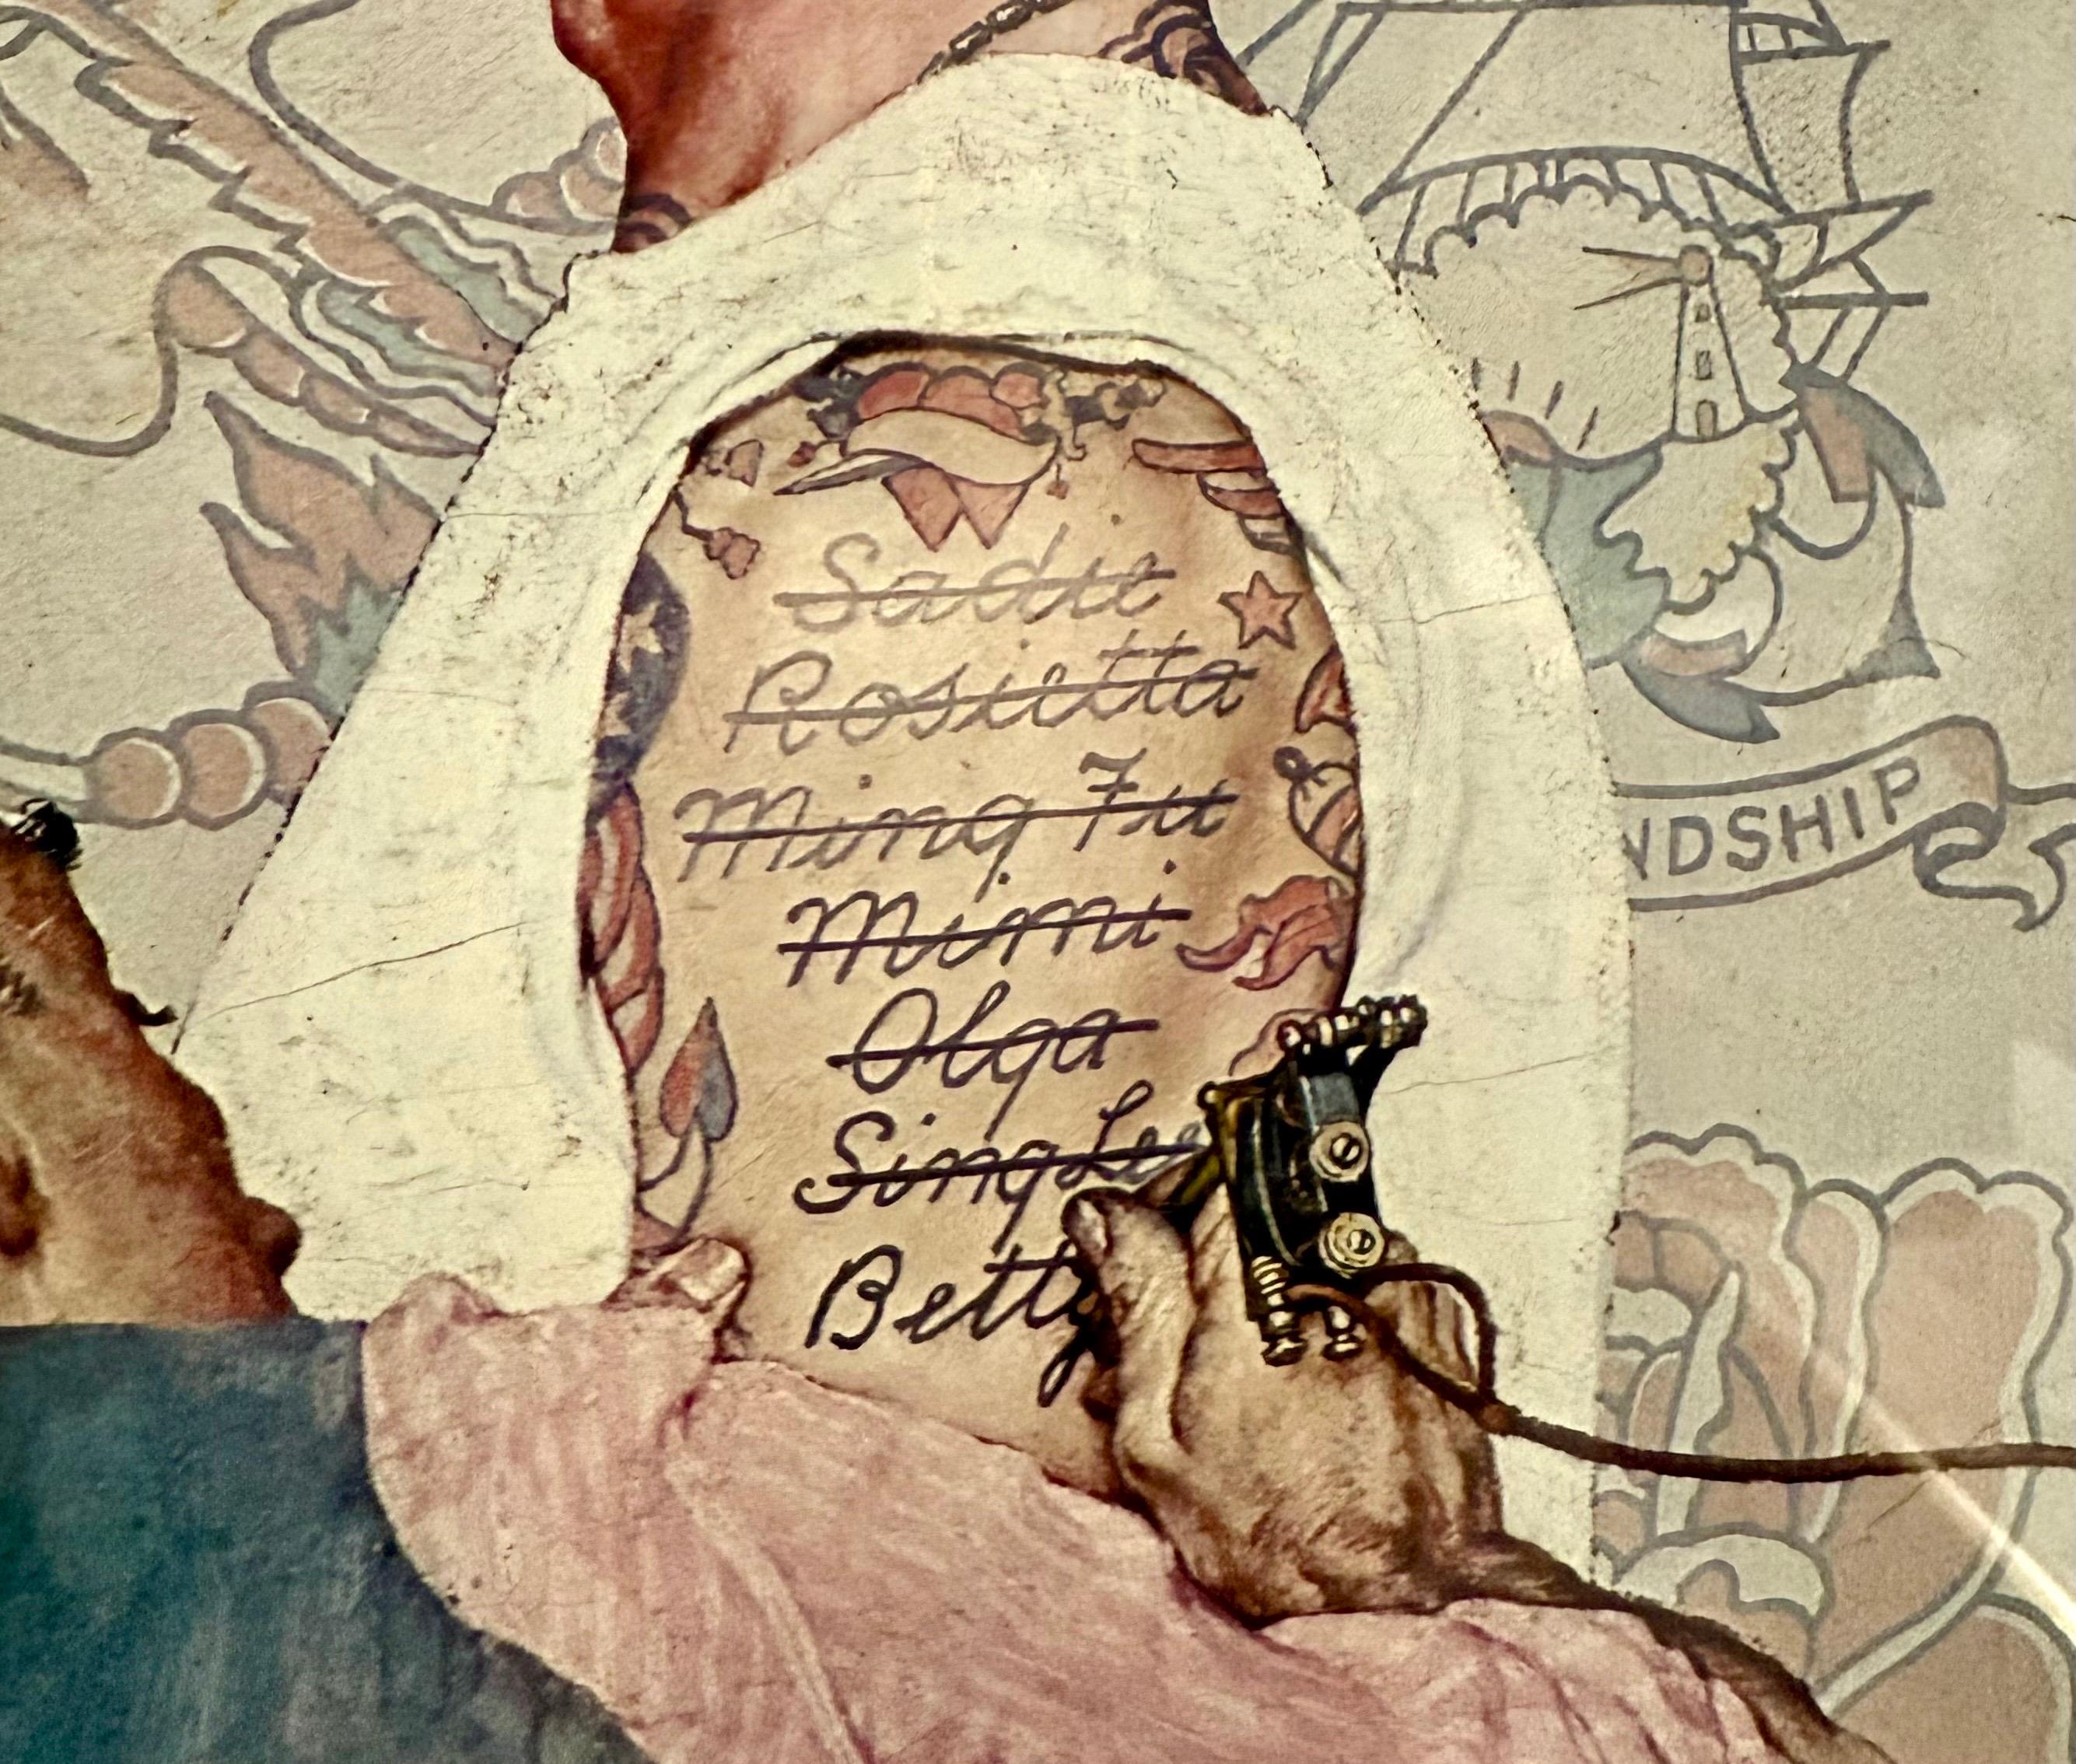 Sadie
Rosietta
Ming Fu
Mimi
Olga
Sing Lee
Betty
NDSHIP